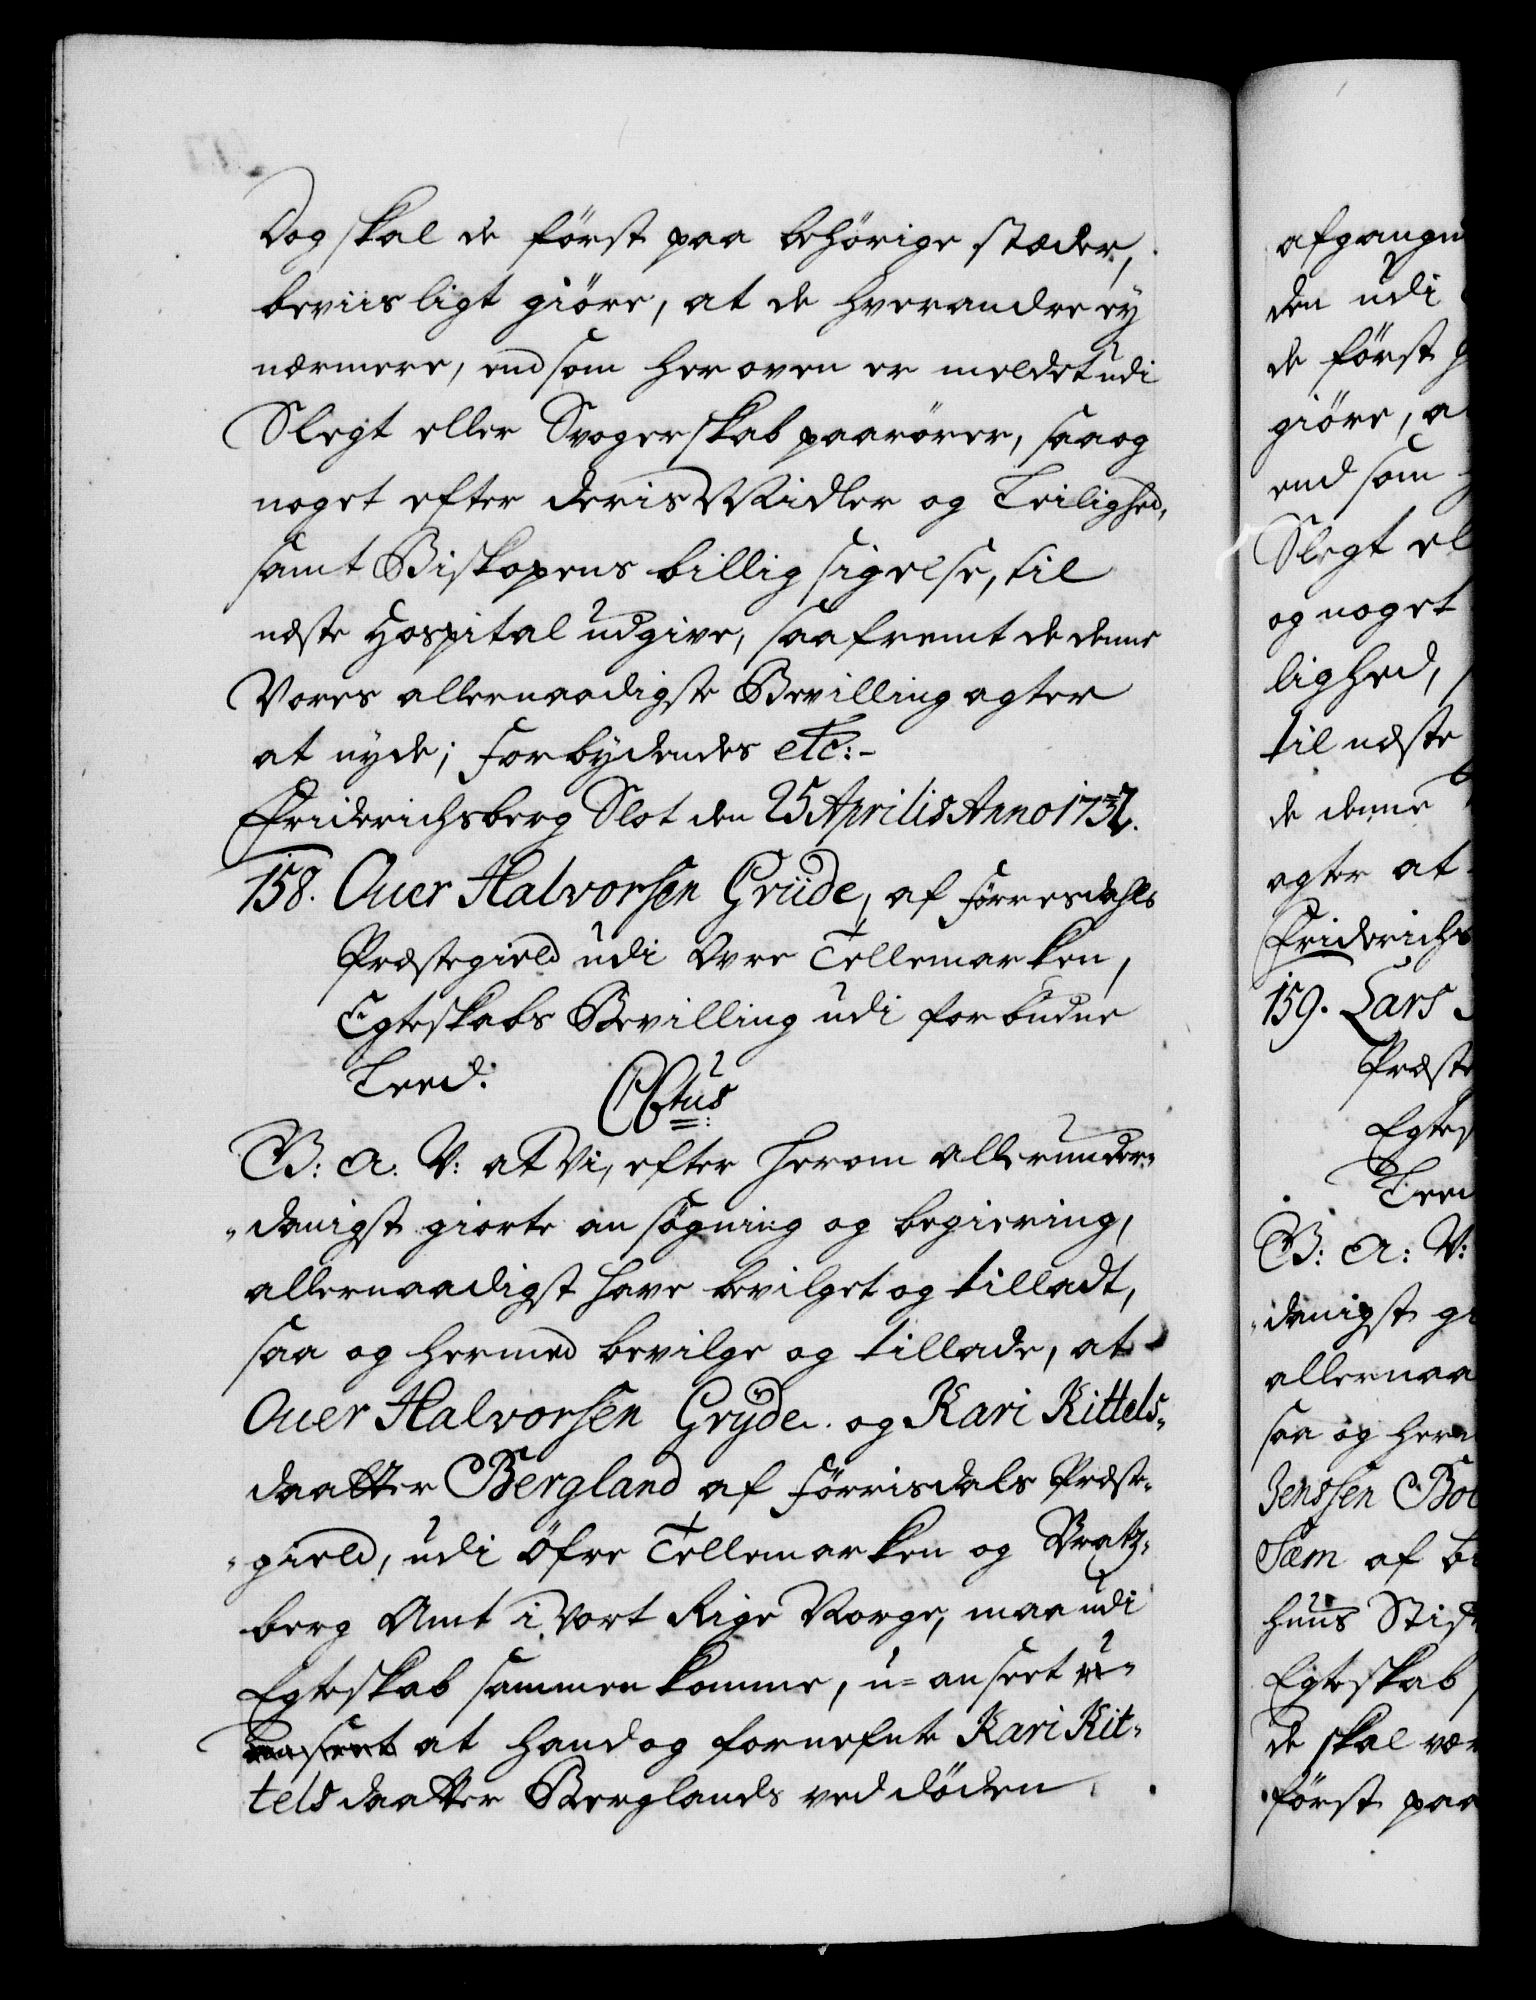 Dog skal de först paa behörige stæder,
beviisligt giöre, at de hverandre ey
nærmere, end som her oven er meldet udi
Slegt eller Svogerskab paarörer, saa og
noget efter deris Midler og Leilighed,
samt Biskopens billig sigelse, til
næste Hospital udgive, saafremt de denne
Vores allernaadigste Bevilling agter
at nyde; Forbydendes etc:-
Friderichsberg Slot den 25 Aprilis Anno
158. Ouer Halvorsen Grüde, af Förresdahls
Præstegield udi Övre Tellemarken,
Egteskabs Bevilling udi forbudne
Leed.
B: A: V: at Vi, efter herom allerunder-
danigst giorte ansögning og begiering,
allernaadigst have bevilget og tilladt,
saa og hermed bevilge og tillade, at
Ouer Halvorsen Gryde og Kari Kittels-
daatter Bergland af Förrisdals Præste-
gield, udi Öfre Tellemarken og Bratz-
berg Amt i Vort Rige Norge, maa udi
Egteskab sammenkomme, u-anseet u-
anseet at hand og fornefnte Kari Kit-
telsdaatter Berglands ved döden
afgangn
den udi
de först
giöre, a
end som
Slegt el
og noget
lighed,
til næste
de denne
agter at
Friderichs
159. Lars
Præste
Egtes
Leed
B: A: V:
danigst gi
allernaa
saa og herm
Jenssen Bo
Sæm af
huus Stift
Egteskab
de skal vær
först paa